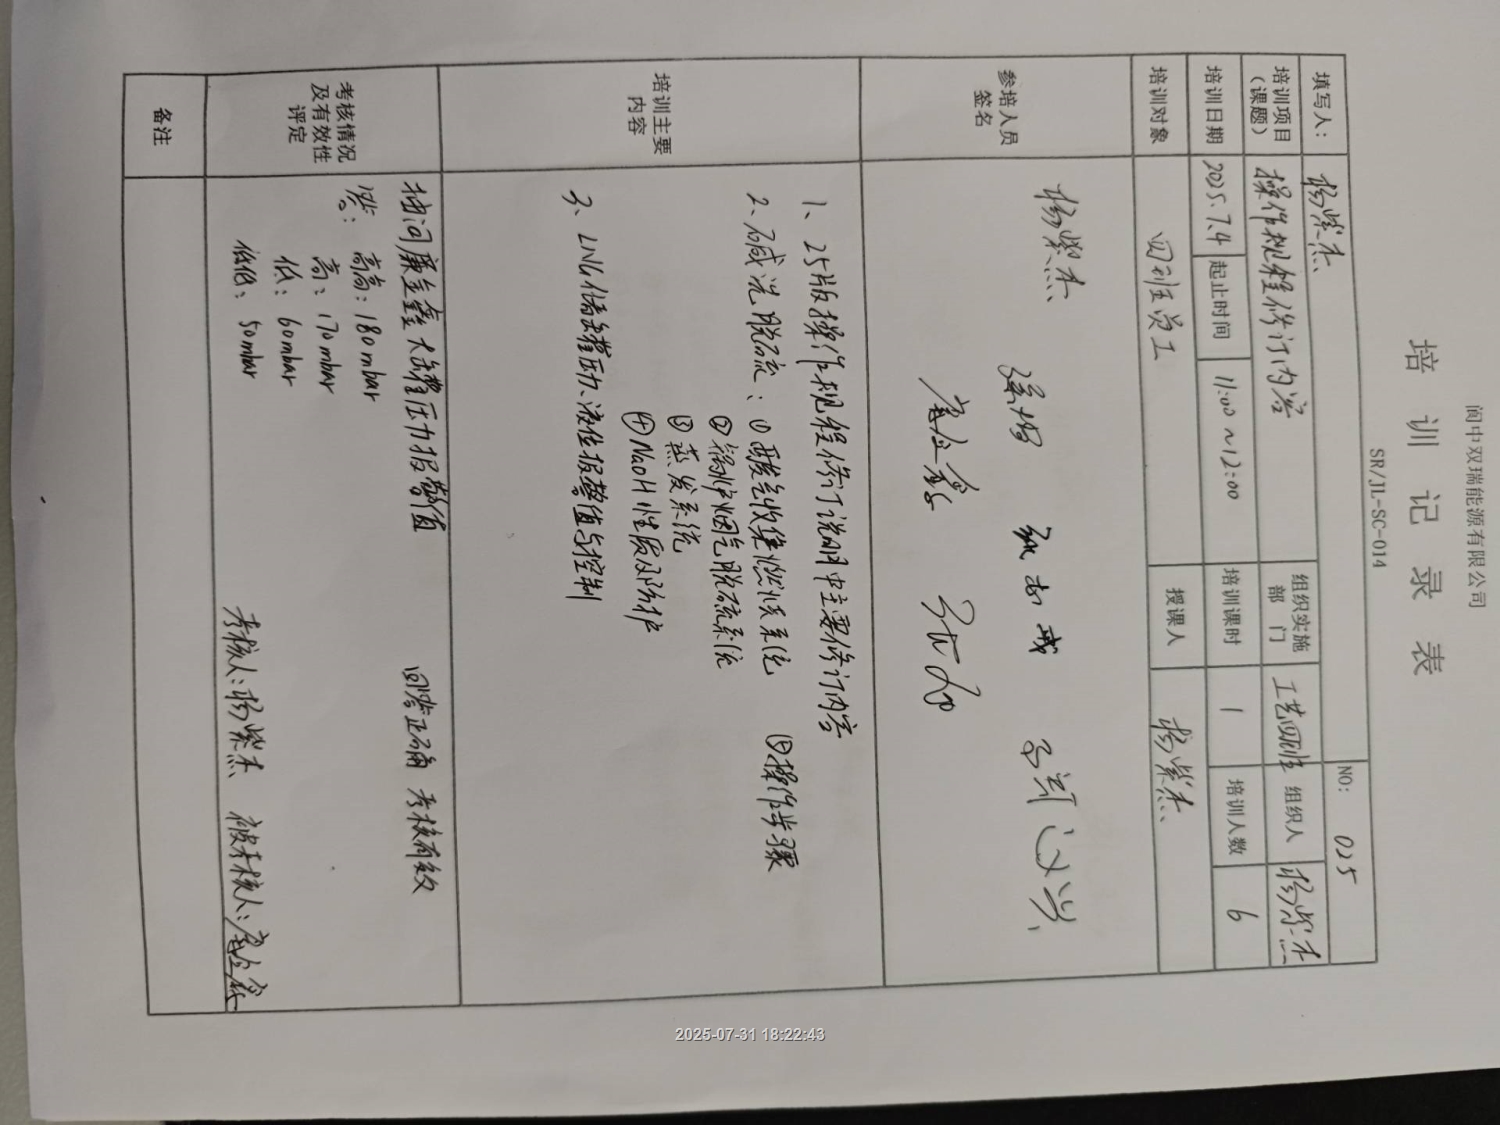 阆中双瑞能源有限公司
培训记录表
SR/JL-SC-014
填写人： 杨紫杰 NO: 025
培训项目（课题） 操作规程修订内容 组织实施部门 工艺四班 组织人 杨紫杰
培训日期 2025.7.4 起止时间 11:00~12:00 培训课时 1 培训人数 6
培训对象 四班员工 授课人 杨紫杰
参培人员签名
杨紫杰
培训主要内容
1、25版操作规程修订说明中主要修订内容
2、碱洗脱硫：①酸气收集燃烧系统 ⑤操作步骤
②锅炉烟气脱硫系统
③蒸发系统
④NaOH性质及防护
3、LNG储罐压力、液位报警值与控制
考核情况及有效性评定
抽问廉金鑫大罐压力报警值 回答正确 考核有效
答：高高：180mbar
高：170mbar
低：60mbar
低低：50mbar
考核人：杨紫杰 被考核人：
备注
2025-07-31 18:22:43